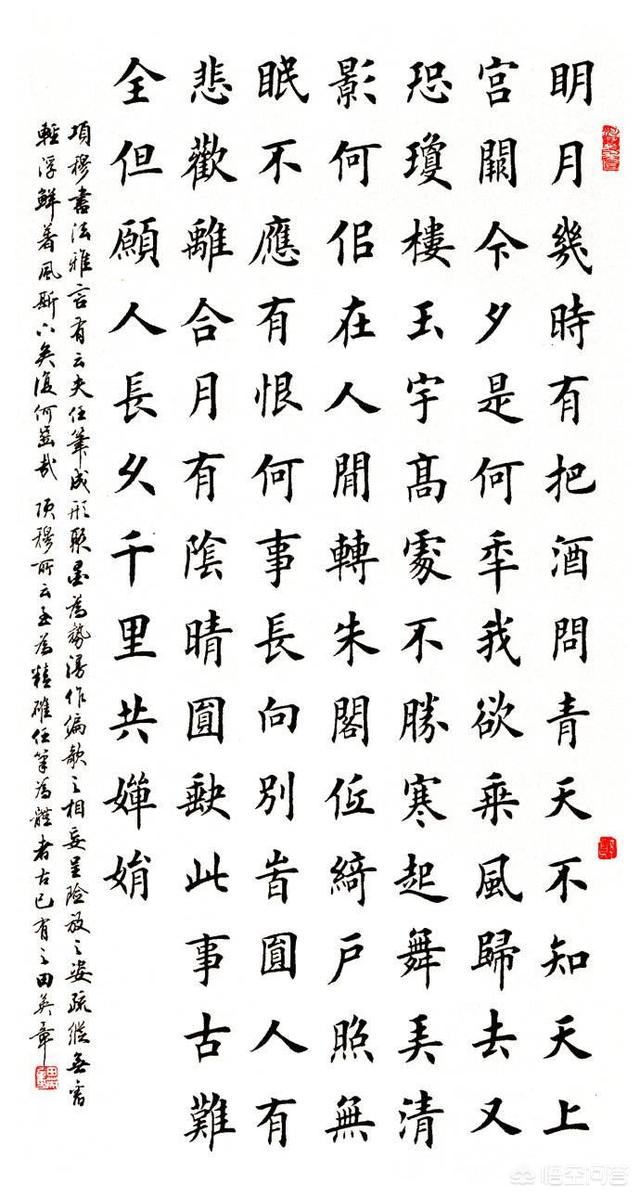 明月幾時有把酒問青天不知天上
宮闕今夕是何年我欲乘風歸去又
恐瓊樓玉宇高處不勝寒起舞弄清
影何佀在人間轉朱閣低綺戶照無
眠不應有恨何事長向別時圓人有
悲歡離合月有陰晴圓缺此事古難
全但願人長久千里共嬋娟
項穆書法雅言有云夫任筆成形聚墨為勢漫作偏欹之相妄呈險放之姿疏縱無歸
輕浮鮮著風斯下矣復何齒哉 項穆所云至為精確任筆為體者古已有之田英章
悟空问答